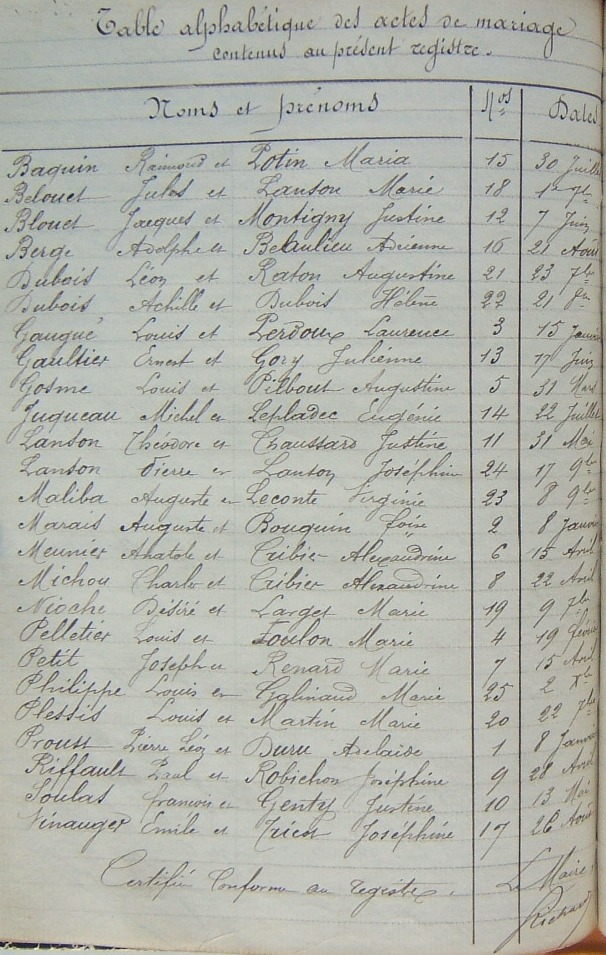 Table alphabétique des actes de mariage
contenus au présent registre.
Noms et prénoms Nos Dates
Baquin Raimond et Potin Maria 15 30 Juillet
Belouet Jules et Lanson Marie 18 1er 7bre
Blouet Jacques et Montigny Justine 12 7 Juin
Berge Adolphe et Beaulieu Adrienne 16 21 Août
Dubois Léon et Raton Augustine 21 23 7bre
Dubois Achille et Dubois Hélène 22 21
Gauqué Louis et Perdoux Laurence 3 15 Janvier
Gaultier Ernest et Gory Julienne 13 17 Juin
Gosme Louis et Pilbout Augustine 5 31 Mars
Juqueau Michel et Lepladec Eugénie 14 22 Juillet
Lanson Théodore et Chaussard Justine 11 31 Mai
Lanson Pierre et Lanson Joséphine 24 17 9bre
Maliba Auguste et Leconte Virginie 23 8 9bre
Marais Auguste et Bouquin 2 8 Janvier
Meunier Anatole et Cribier Alexandrine 6 15 Avril
Michou Charles et Cribier Alexandrine 8 22 Avril
Nioche Désiré et Larget Marie 19 9 7bre
Pelletier Louis et Foulon Marie 4 19 février
Petit Joseph et Renard Marie 7 15 Avril
Philippe Louis et Galinaud Marie 25 2 Xbre
Plessis Louis et Martin Marie 20 22 7bre
Proust Pierre Léon et Duru Adelaide 1 8 Janvier
Riffault Paul et Robichon Joséphine 9 28 Avril
Soulas francois et Genty Justine 10 13 Mai
Vinauger Emile et Tricot Joséphine 17 26 Août
Certifié Conforme au registre. Le Maire,
Richard